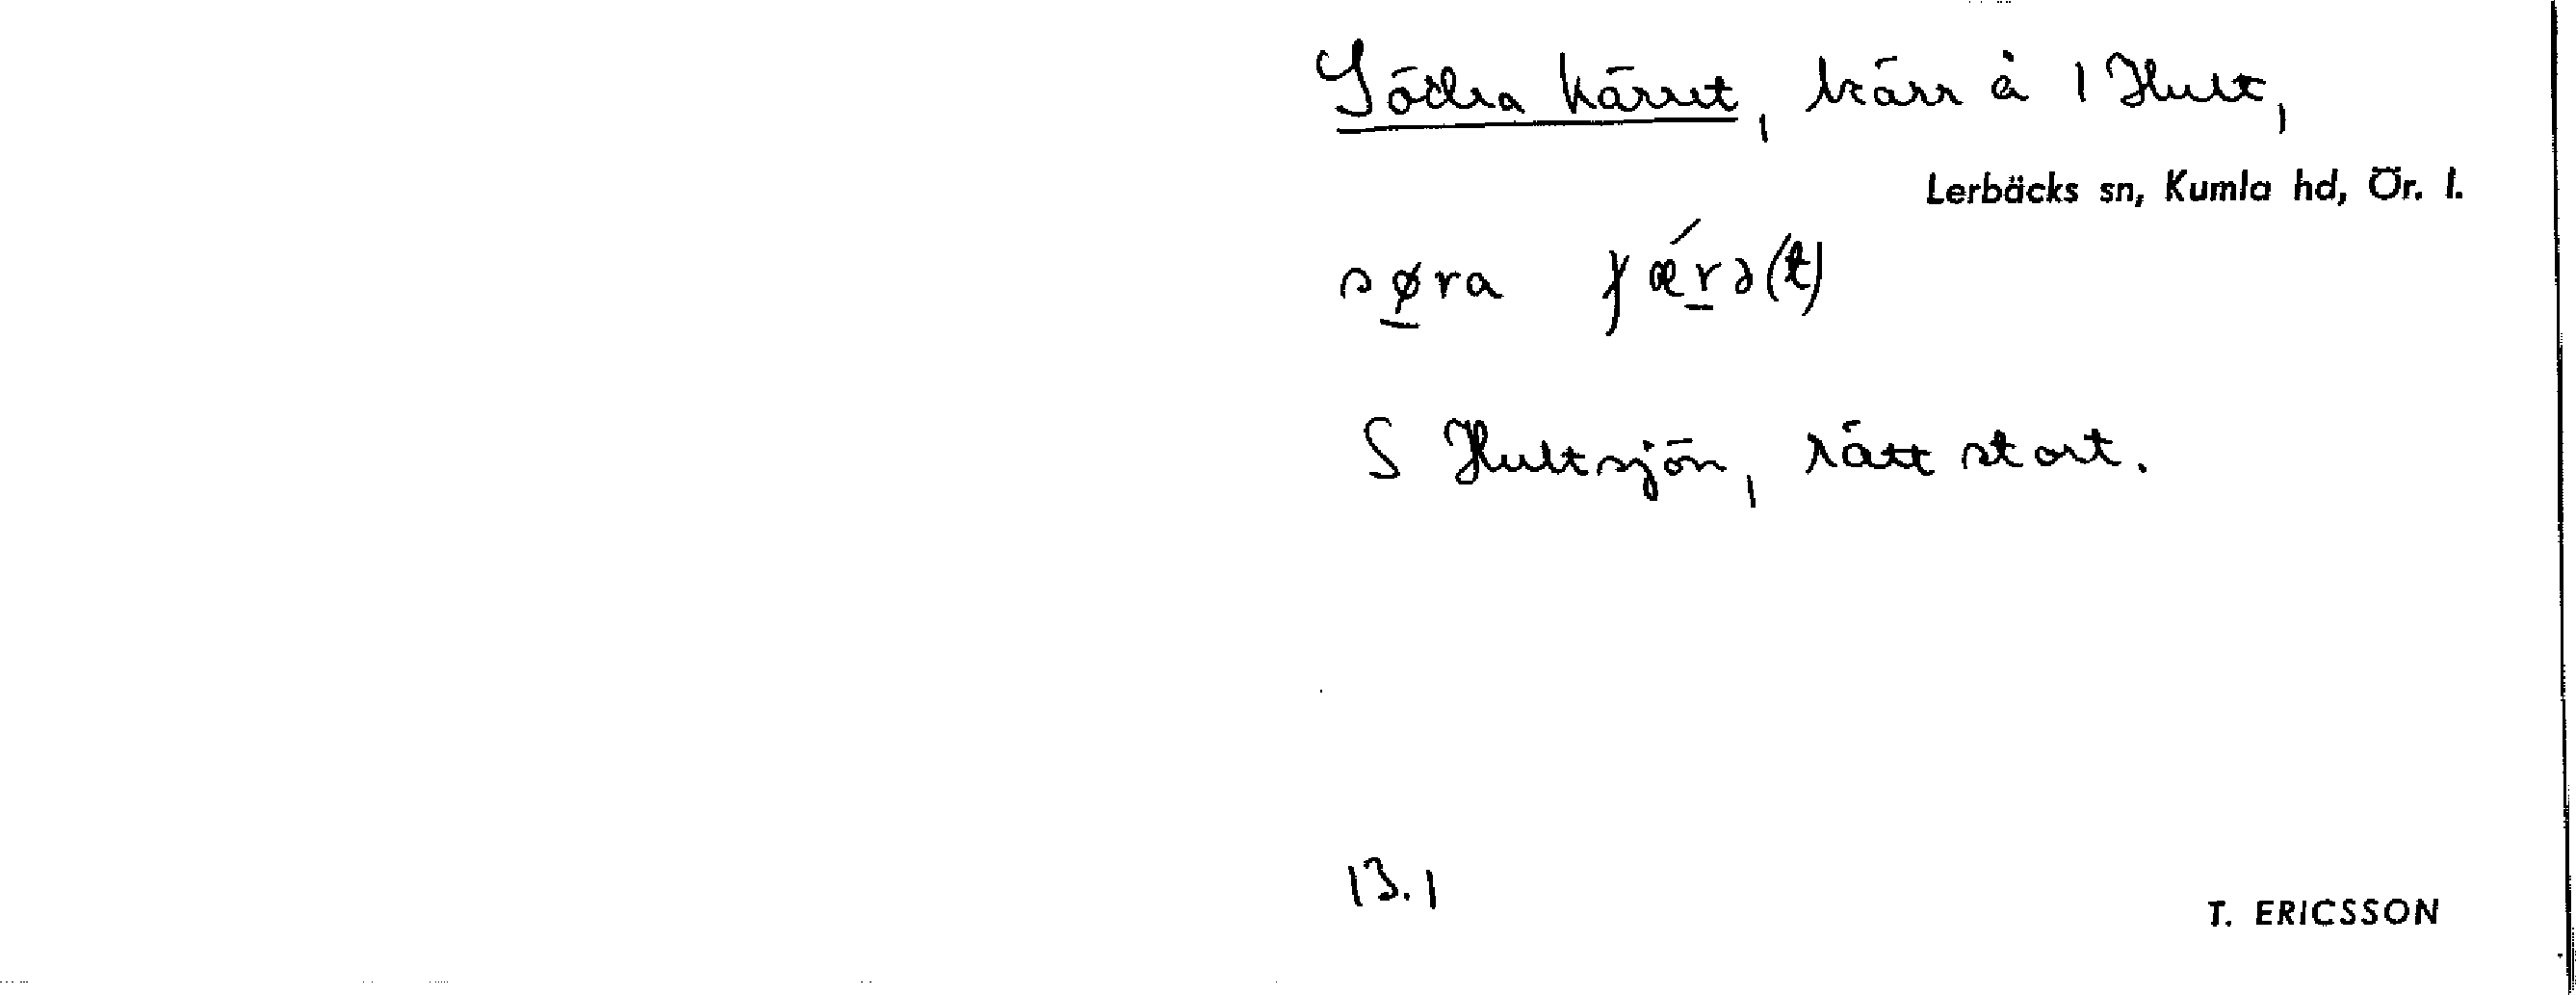 Södra kärret, kärr å 1 Hult,
Lerbäcks sn, Kumla hd, Ör. l.
søra ʃǽrə(t)
S Hultsjön, rätt stort.
13.1
T. ERICSSON